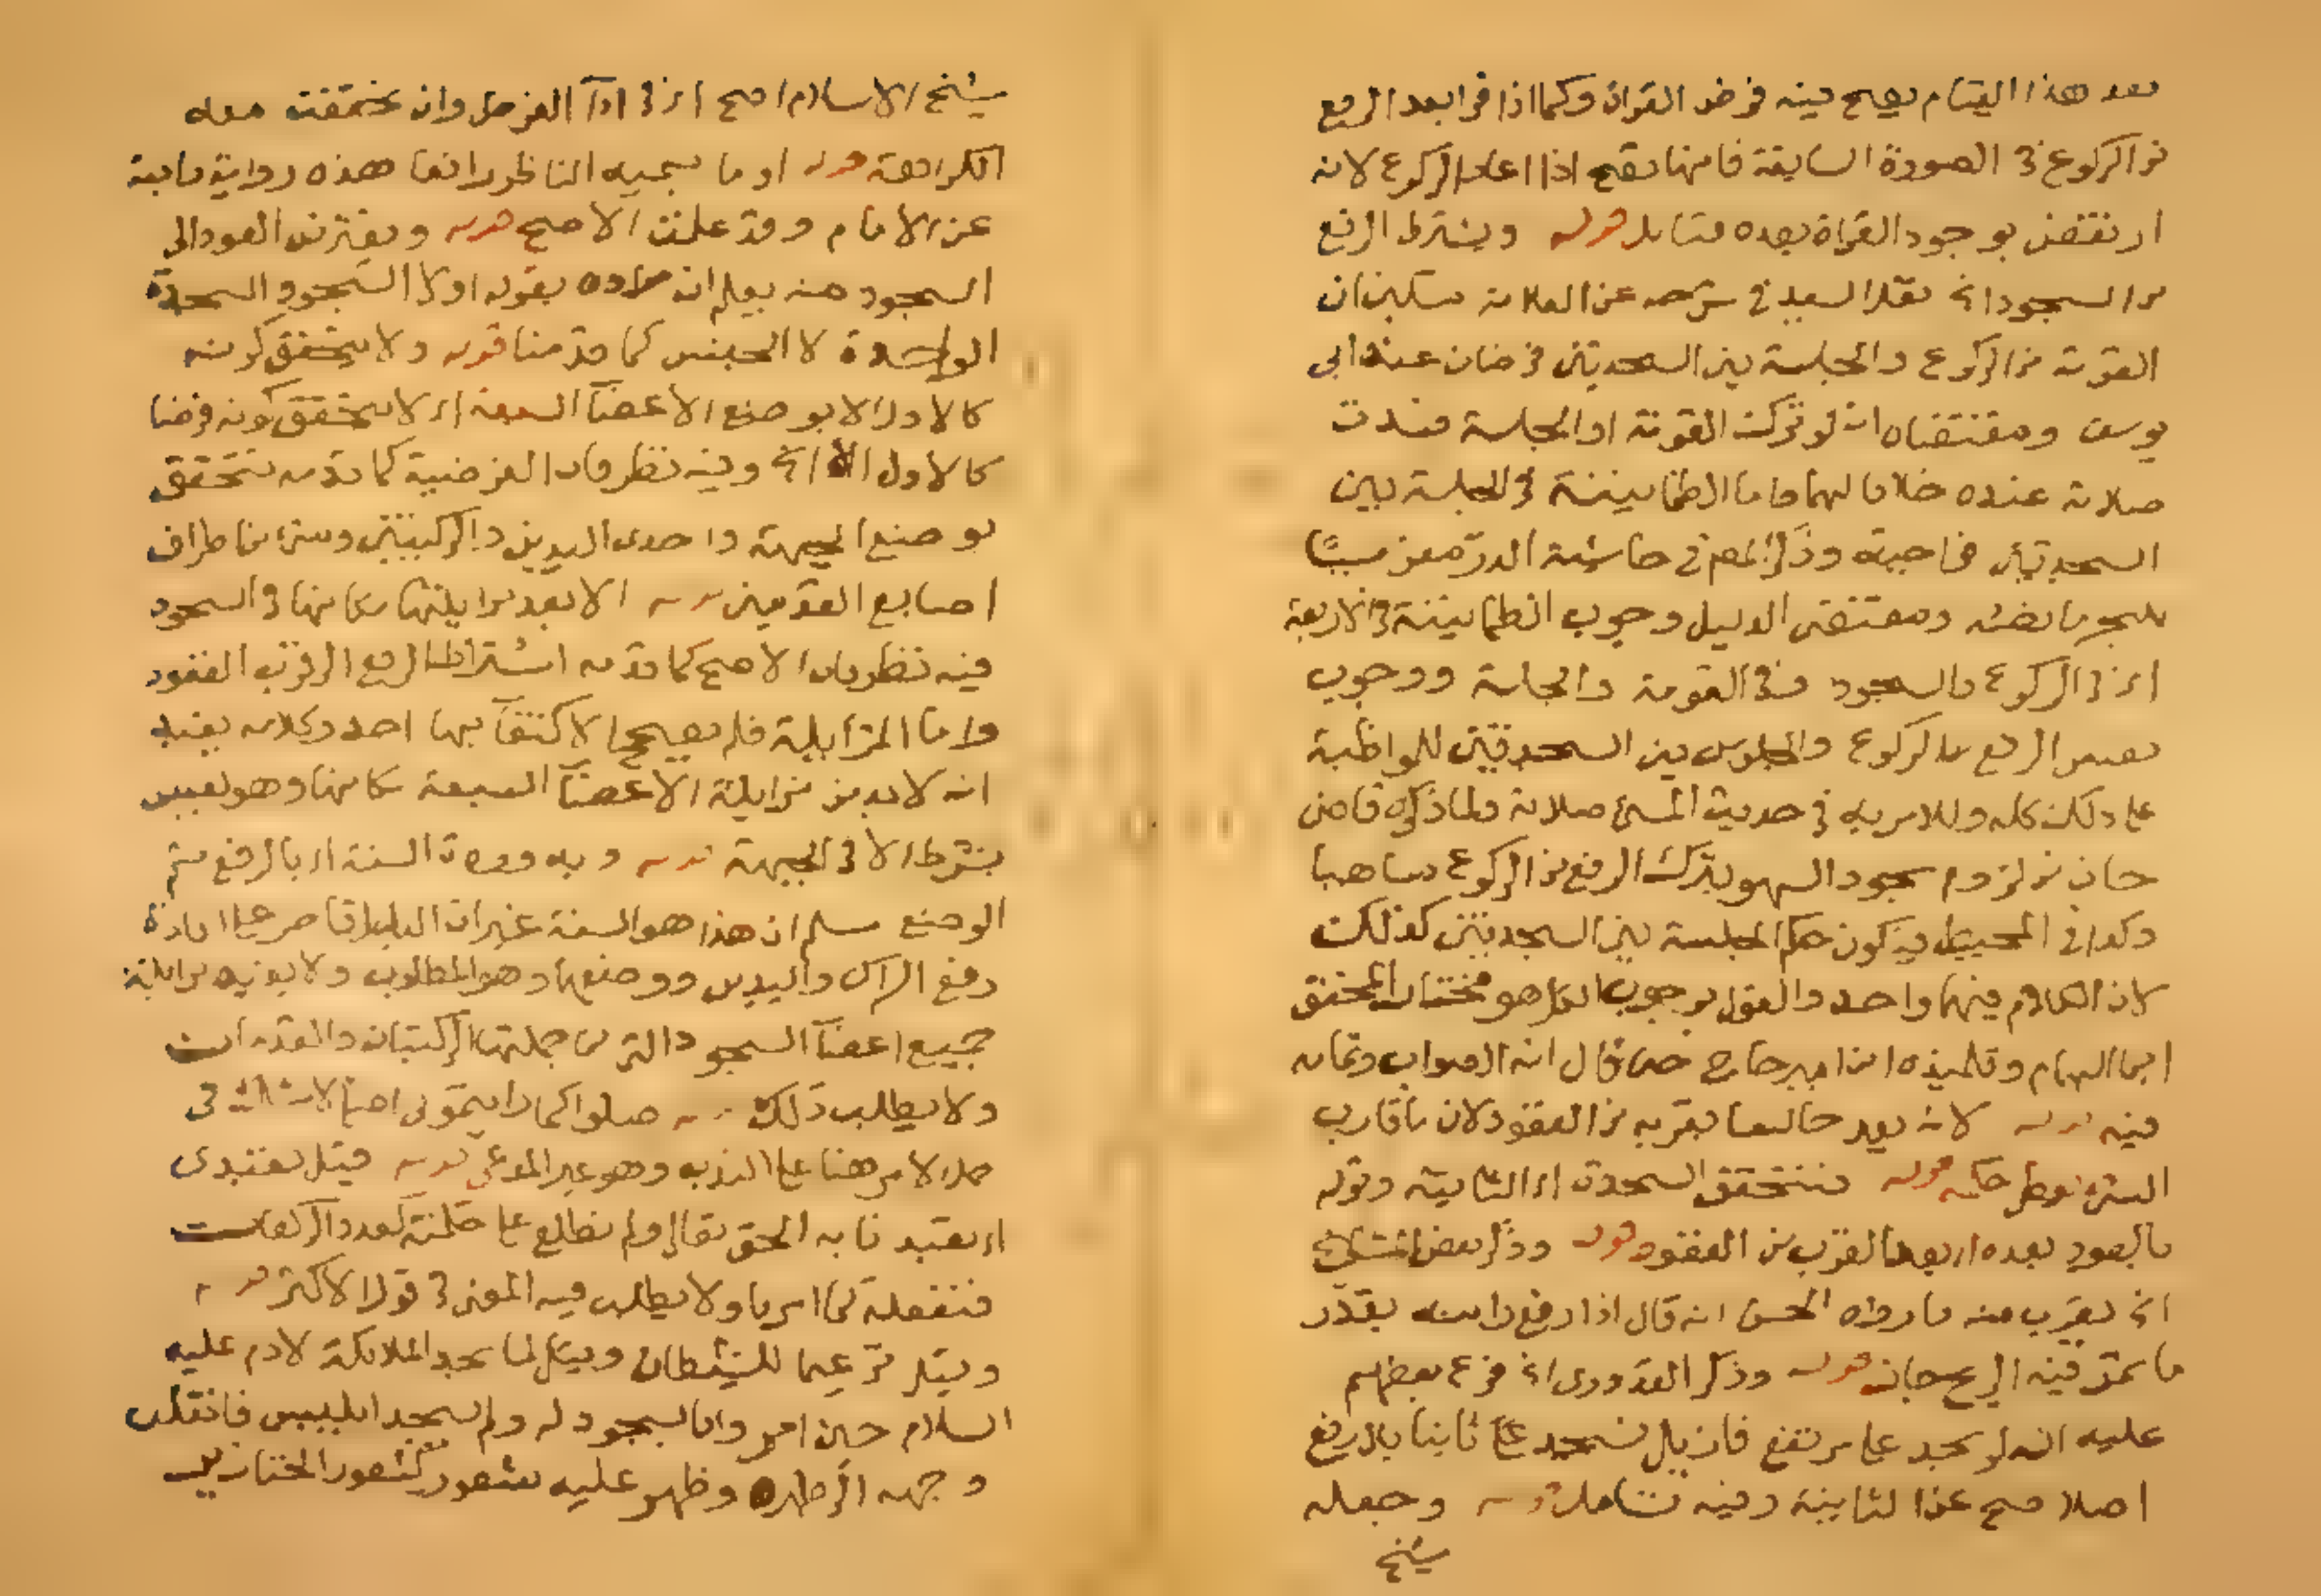 بعد هذا القيام يصح فيه فرض القراة وكما اذا قرا بعد الرفع
من الركوع في الصورة السابقة فانها تصح اذا اعاد الركوع لانه
ارتفض بوجود القراة بعده فتامل قوله ويشترط الرفع
من السجود الخ نقل السعيد في شرحه عن العلامة مسكين ان
القومة من الركوع والجلسة بين السجدتين فرضان عند ابي
يوسف ومقتضاه انه لو تركت القومة او الجلسة فسدت
صلاته عنده خلافا لهما واما الطمانينة في الجلسة بين
السجدتين فواجبة وذكر المص في حاشية الدرر معزيا
للبحر ما نصه ومقتضى الدليل وجوب الطمانينة في الاربعة
اي في الركوع والسجود وفي القومة والجلسة ووجوب
نفس الرفع من الركوع والجلوس بين السجدتين للمواظبة
على ذلك كله وللامر به في حديث المسئ صلاته ولما ذكره قاضي
خان من لزوم سجود السهو بترك الرفع من الركوع ساهيا
وكذا في المحيط فيكون حكم الجلسة بين السجدتين كذلك
لان الكلام فيهما واحد والقول بوجوب الكل هو مختار المحقق
ابن الهمام وتلميذه ابن امير حاج حتى قال انه الصواب وتمامه
فيه قوله لانه يعد جالسا بقربه من القعود لان ما قارب
الشئ يعطى حكمه قوله فتتحقق السجدة اي الثانية وقوله
بالعود بعده اي بعد القرب من القعود قوله وذكر بعض المشايخ
الخ يقرب منه ما رواه الحسن انه قال اذا رفع راسه بقدر
ما تمر فيه الريح جاز قوله وذكر القدوري الخ فرع بعضهم
عليه انه لو سجد على مرتفع فازيل فسجد ثانيا بلا رفع
اصلا صح عن الثانية وفيه تامل قوله وجعله
شيخ
شيخ الاسلام اصح اي في ادا الفرض وان تحققت معه
الكراهة قوله او ما يسميه الناظر رافعا هذه رواية ثابتة
عن الامام وقد علمت الاصح قوله ويفترض العود الى
السجود منه يعلم ان مراده بقوله اولا السجود السجدة
الواحدة لا الجنس كما قدمنا قوله ولا يتحقق كونه
كالاول الا بوضع الاعضآ السبعة اي لا يتحقق كونه فرضا
كالاول الا الخ وفيه نظر فان الفرضية كما قدمه تتحقق
بوضع الجبهة واحدى اليدين والركبتين وشئ من اطراف
اصابع القدمين قوله الا بعد مزايلتها مكانها في السجود
فيه نظر فان الاصح كما قدمه اشتراط الرفع الى قرب القعود
واما المزايلة فلم يصحح الاكتفآ بها احد وكلامه يفيد
انه لا بد من مزايلة الاعضآ السبعة مكانها وهو ليس
بشرط الا في الجبهة قوله وبه وردت السنة اي بالرفع ثم
الوضع مسلم ان هذا هو السنة غير ان الدليل قاصر على افادة
رفع الراس واليدين ووضعهما وهو المطلوب ولا يفيد مزايلة
جميع اعضآ السجود التي من جملتها الركبتان والقدمان
ولا يطلب ذلك قوله صلوا كما رايتموني اصلي
حمل الامر هنا على الندب وهو غير المدعى قوله قيل تعبدي
اي تعبدنا به الحق تعالى ولم نطلع على حكمته كعدد الركعات
فنفعله كما امرنا ولا يطلب فيه المعنى في قول الاكثر قوله
وقيل ترغيما للشيطان وقيل لما سجد الملائكة لادم عليه
السلام حين امروا بالسجود له ولم يسجد ابليس فانقلب
وجهه الى ظهره وظهر عليه شعور كشعور الخنازير